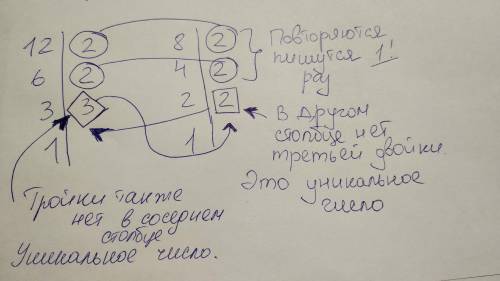 12 | 2 8 | 2 Повторяются
6 | 2 4 | 2 пишутся 1!
3 | 3 2 | 2 раз
1 | 1 |
В другом
столбце нет
третьей двойки.
Это уникальное
число
Тройки также
нет в соседнем
столбце
Уникальное число.